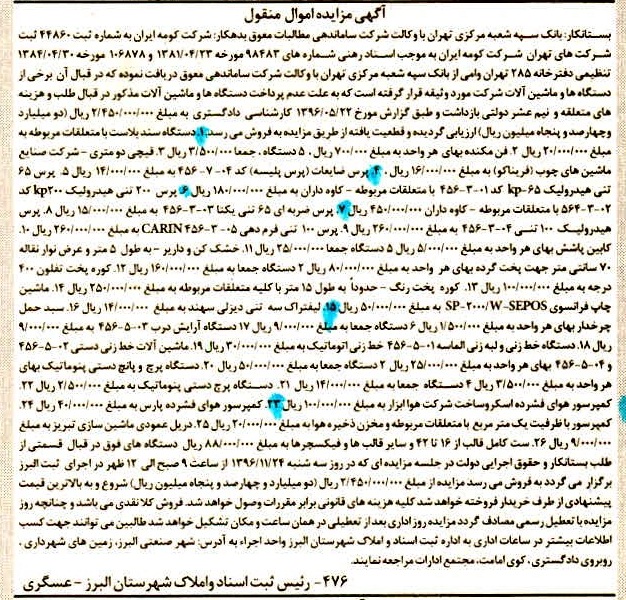 آگهی مزایده اموال منقول
بستانکار: بانک سپه شعبه مرکزی تهران با وکالت شرکت ساماندهی مطالبات معوق بدهکار: شرکت کومه ایران به شماره ثبت ۴۴۸۶۰ ثبت
شرکت های تهران شرکت کومه ایران به موجب اسناد رهنی شماره های ۹۸۴۸۳ مورخه ۱۳۸۱/۰۴/۲۳ و ۱۰۶۸۷۸ مورخه ۱۳۸۴/۰۴/۳۰
تنظیمی دفترخانه ۲۸۵ تهران وامی از بانک سپه شعبه مرکزی تهران با وکالت شرکت ساماندهی معوق دریافت نموده که در قبال آن برخی از
دستگاه ها و ماشین آلات شرکت مورد وثیقه قرار گرفته است که به علت عدم پرداخت دستگاه ها و ماشین آلات مذکور در قبال طلب و هزینه
های متعلقه و نیم عشر دولتی بازداشت و طبق گزارش مورخ ۱۳۹۶/۰۵/۲۲ کارشناسی دادگستری به مبلغ ۲/۴۵۰/۰۰۰/۰۰۰ (دو میلیارد
و چهارصد و پنجاه میلیون ریال) ارزیابی گردیده و قطعیت یافته از طریق مزایده به فروش می رسد ۱. دستگاه سند بلاست با متعلقات مربوطه به
مبلغ ۲۰/۰۰۰/۰۰۰ ریال ۲. فن مکنده بهای هر واحد به مبلغ ۷۰۰/۰۰۰ ریال، ۵ دستگاه، جمعا ۳/۵۰۰/۰۰۰ ریال ۳. قیچی دو متری - شرکت صنایع
ماشین های چوب (فریناکو) به مبلغ ۱۶/۰۰۰/۰۰۰ ریال، ۴. پرس ضایعات (پرس پلیسه) کد ۰۴-۷-۴۵۶ به مبلغ ۱۴/۰۰۰/۰۰۰ ریال ۵. پرس ۶۵
تنی هیدرولیک kp-۶۵ کد ۰۱-۳-۴۵۶ با متعلقات مربوطه - کاوه داران به مبلغ ۱۸۰/۰۰۰/۰۰۰ ریال ۶. پرس ۲۰۰ تنی هیدرولیک kp۲۰۰ کد
۰۲-۳-۵۶۴ با متعلقات مربوطه - کاوه داران ۴۵۰/۰۰۰/۰۰۰ ریال ۷. پرس ضربه ای ۶۵ تنی یکتا ۰۳-۳-۴۵۶ به مبلغ ۱۵/۰۰۰/۰۰۰ ریال ۸. پرس
هیدرولیک ۱۰۰ تنی ۰۴-۳-۴۵۶ به مبلغ ۲۶۰/۰۰۰/۰۰۰ ریال ۹. پرس ۱۰۰ تنی فرم دهی CARIN ۴۵۶-۳-۰۵ به مبلغ ۲۶۰/۰۰۰/۰۰۰ ریال ۱۰.
کابین پاشش بهای هر واحد به مبلغ ۵/۰۰۰/۰۰۰ ریال ۵ دستگاه جمعا ۲۵/۰۰۰/۰۰۰ ریال ۱۱. خشک کن و داریر - به طول ۵ متر و عرض نوار نقاله
۷۰ سانتی متر جهت پخت گرده بهای هر واحد به مبلغ ۸۰/۰۰۰/۰۰۰ ریال ۲ دستگاه جمعا به مبلغ ۱۶۰/۰۰۰/۰۰۰ ریال ۱۲. کوره پخت تفلون ۴۰۰
درجه به مبلغ ۱۰۰/۰۰۰/۰۰۰ ریال ۱۳. کوره پخت رنگ - حدوداً به طول ۱۵ متر با کلیه متعلقات مربوطه به مبلغ ۲۵۰/۰۰۰/۰۰۰ ریال ۱۴. ماشین
چاپ فرانسوی SP-۲۰۰۰/W-SEPOS به مبلغ ۵۰/۰۰۰/۰۰۰ ریال ۱۵. لیفتراک سه تنی دیزلی سهند به مبلغ ۱۴/۰۰۰/۰۰۰ ریال ۱۶. سبد حمل
چرخدار بهای هر واحد به مبلغ ۱/۵۰۰/۰۰۰ ریال ۶ دستگاه جمعا به مبلغ ۹/۰۰۰/۰۰۰ ریال ۱۷ دستگاه آرایش درب ۰۳-۵-۴۵۶ به مبلغ ۹/۰۰۰/۰۰۰
ریال ۱۸. دستگاه خط زنی و لبه زنی الماسه ۰۱-۵-۴۵۶ خط زنی اتوماتیک به مبلغ ۳۰/۰۰۰/۰۰۰ ریال ۱۹. ماشین آلات خط زنی دستی ۰۲-۵-۴۵۶
و ۰۴-۵-۴۵۶ بهای هر واحد به مبلغ ۲۵/۰۰۰/۰۰۰ ریال ۲ دستگاه جمعا به مبلغ ۵۰/۰۰۰/۰۰۰ ریال ۲۰. دستگاه پرچ و پانچ دستی پنوماتیک بهای
هر واحد به مبلغ ۳/۵۰۰/۰۰۰ ریال ۴ دستگاه جمعا به مبلغ ۱۴/۰۰۰/۰۰۰ ریال ۲۱. دستگاه پرچ دستی پنوماتیک به مبلغ ۲/۵۰۰/۰۰۰ ریال ۲۲.
کمپرسور هوای فشرده اسکرو ساخت شرکت هوا ابزار به مبلغ ۱۰۰/۰۰۰/۰۰۰ ریال ۲۳. کمپرسور هوای فشرده پارس به مبلغ ۴۰/۰۰۰/۰۰۰ ریال ۲۴.
کمپرسور با ظرفیت یک متر مربع با متعلقات مربوطه و مخزن ذخیره هوا به مبلغ ۲۰/۰۰۰/۰۰۰ ریال ۲۵. دریل عمودی ماشین سازی تبریز به مبلغ
۹/۰۰۰/۰۰۰ ریال ۲۶. ست کامل قالب از ۱۶ تا ۴۲ و سایر قالب ها و فیکسچرها به مبلغ ۸۸/۰۰۰/۰۰۰ ریال دستگاه های فوق در قبال قسمتی از
طلب بستانکار و حقوق اجرایی دولت در جلسه مزایده ای که در روز سه شنبه ۱۳۹۶/۱۱/۲۴ از ساعت ۹ صبح الی ۱۲ ظهر در اجرای ثبت البرز
برگزار می گردد به فروش می رسد مزایده از مبلغ ۲/۴۵۰/۰۰۰/۰۰۰ ریال (دو میلیارد و چهارصد و پنجاه میلیون ریال) شروع و به بالاترین قیمت
پیشنهادی از طرف خریدار فروخته خواهد شد کلیه هزینه های قانونی برابر مقررات وصول خواهد شد. فروش کلا نقدی می باشد و چنانچه روز
مزایده با تعطیل رسمی مصادف گردد مزایده روز اداری بعد از تعطیلی در همان ساعت و مکان تشکیل خواهد شد طالبین می توانند جهت کسب
اطلاعات بیشتر در ساعات اداری به اداره ثبت اسناد و املاک شهرستان البرز واحد اجراء به آدرس: شهر صنعتی البرز، زمین های شهرداری،
روبروی دادگستری، کوی امامت، مجتمع ادارات مراجعه نمایند.
۴۷۶- رئیس ثبت اسناد و املاک شهرستان البرز - عسگری